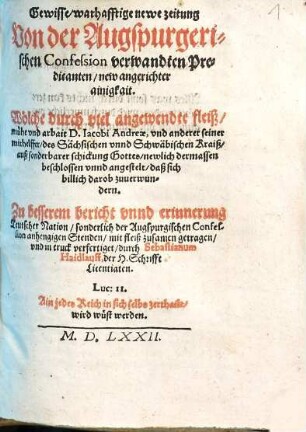 Gewisse/warhafftige newe zeitung
Von der Augspurgeri-
schen Confession verwandten Pre-
dicanten/new angerichter
ainigkait.
Wölche durch viel angewendte fleiß/
mühe vnd arbait D. Iacobi Andreæ, vnd anderer seiner
mithelffer/des Sächsischen vnnd Schwäbischen Kraiß/
auß sonderbarer schickung Gottes/newlich dermassen
beschlossen vnnd angestelt/daß sich
billich darob zuuerwun-
dern.
Zu besserem bericht vnnd erinnerung
Teutscher Nation/sonderlich der Augspurgischen Confes-
sion anhengigen Stenden/mit fleiß zusamen getragen/
vnd in truck verfertiget/durch Sebastianum
Haidlauff, der H. Schrifft
Licentiaten.
Luc: 11.
Ain jedes Reich in sich selbs zerthailt/
wird wüst werden.
M. D. LXXII.